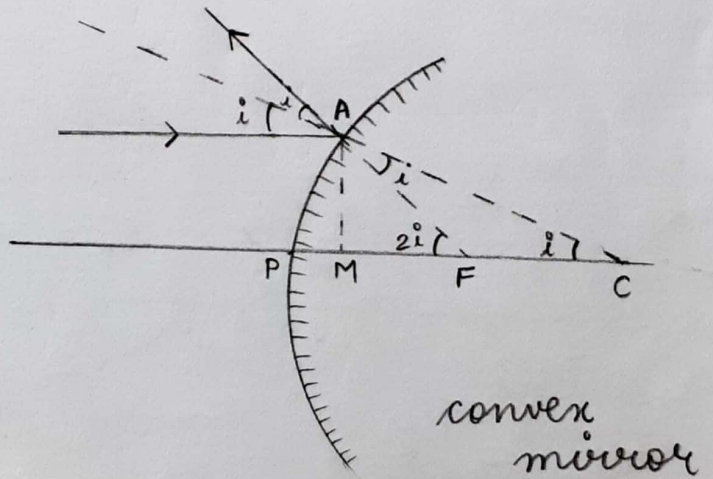 A
i
i
i
2i
i
P
M
F
C
convex
mirror